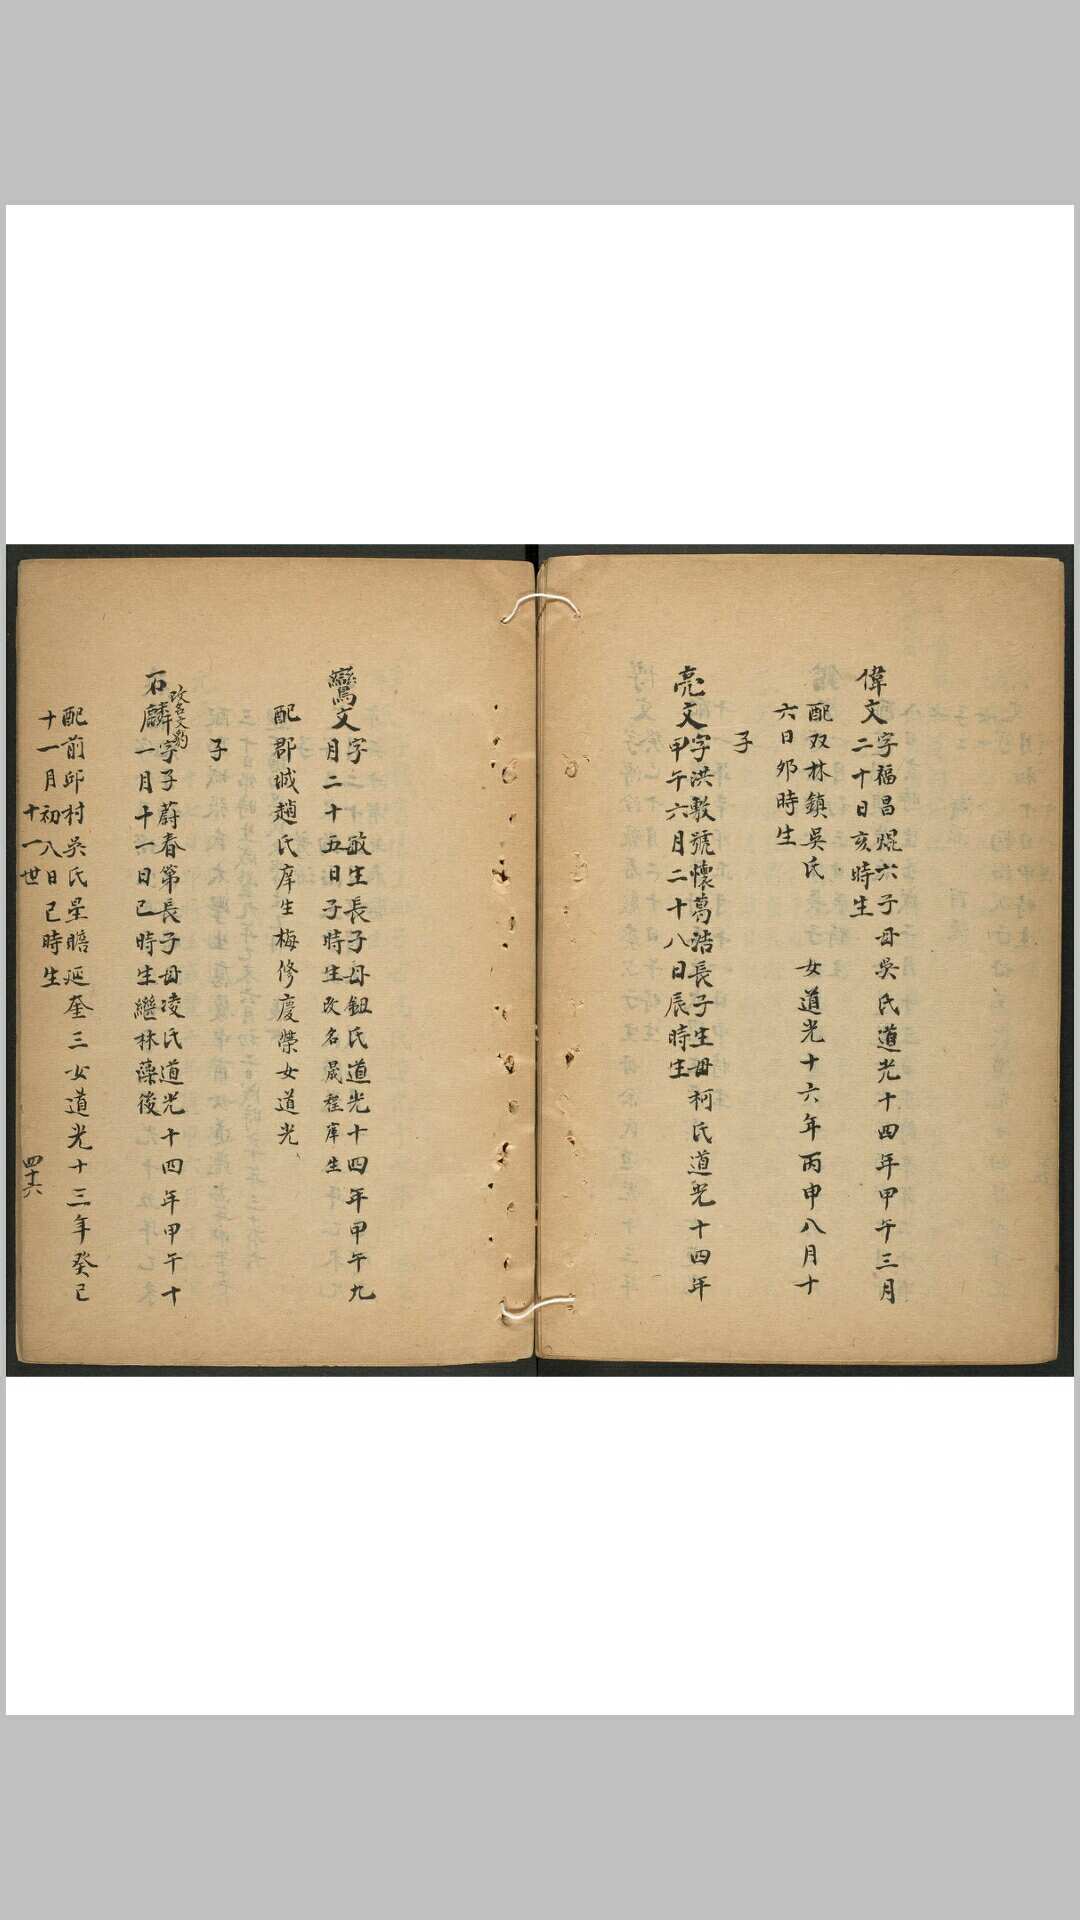 偉文
字福昌焜六子母吳氏道光十四年甲午三月
二十日亥時生
配双林鎮吳氏 女道光十六年丙申八月十
六日夘時生
子
亮文
字洪敷號懷葛浩長子生母柯氏道光十四年
甲午六月二十八日辰時生
鸞文
字 敏生長子母鈕氏道光十四年甲午九
月二十五日子時生改名晟程庠生
配郡城趙氏庠生梅修慶榮女道光
子
石麟
改名文豹
字子蔚春第長子母凌氏道光十四年甲午十
一月十一日巳時生繼林藻後
配前邱村吳氏星瞻延奎三女道光十三年癸巳
十一月初八日巳時生
十一世
四十六